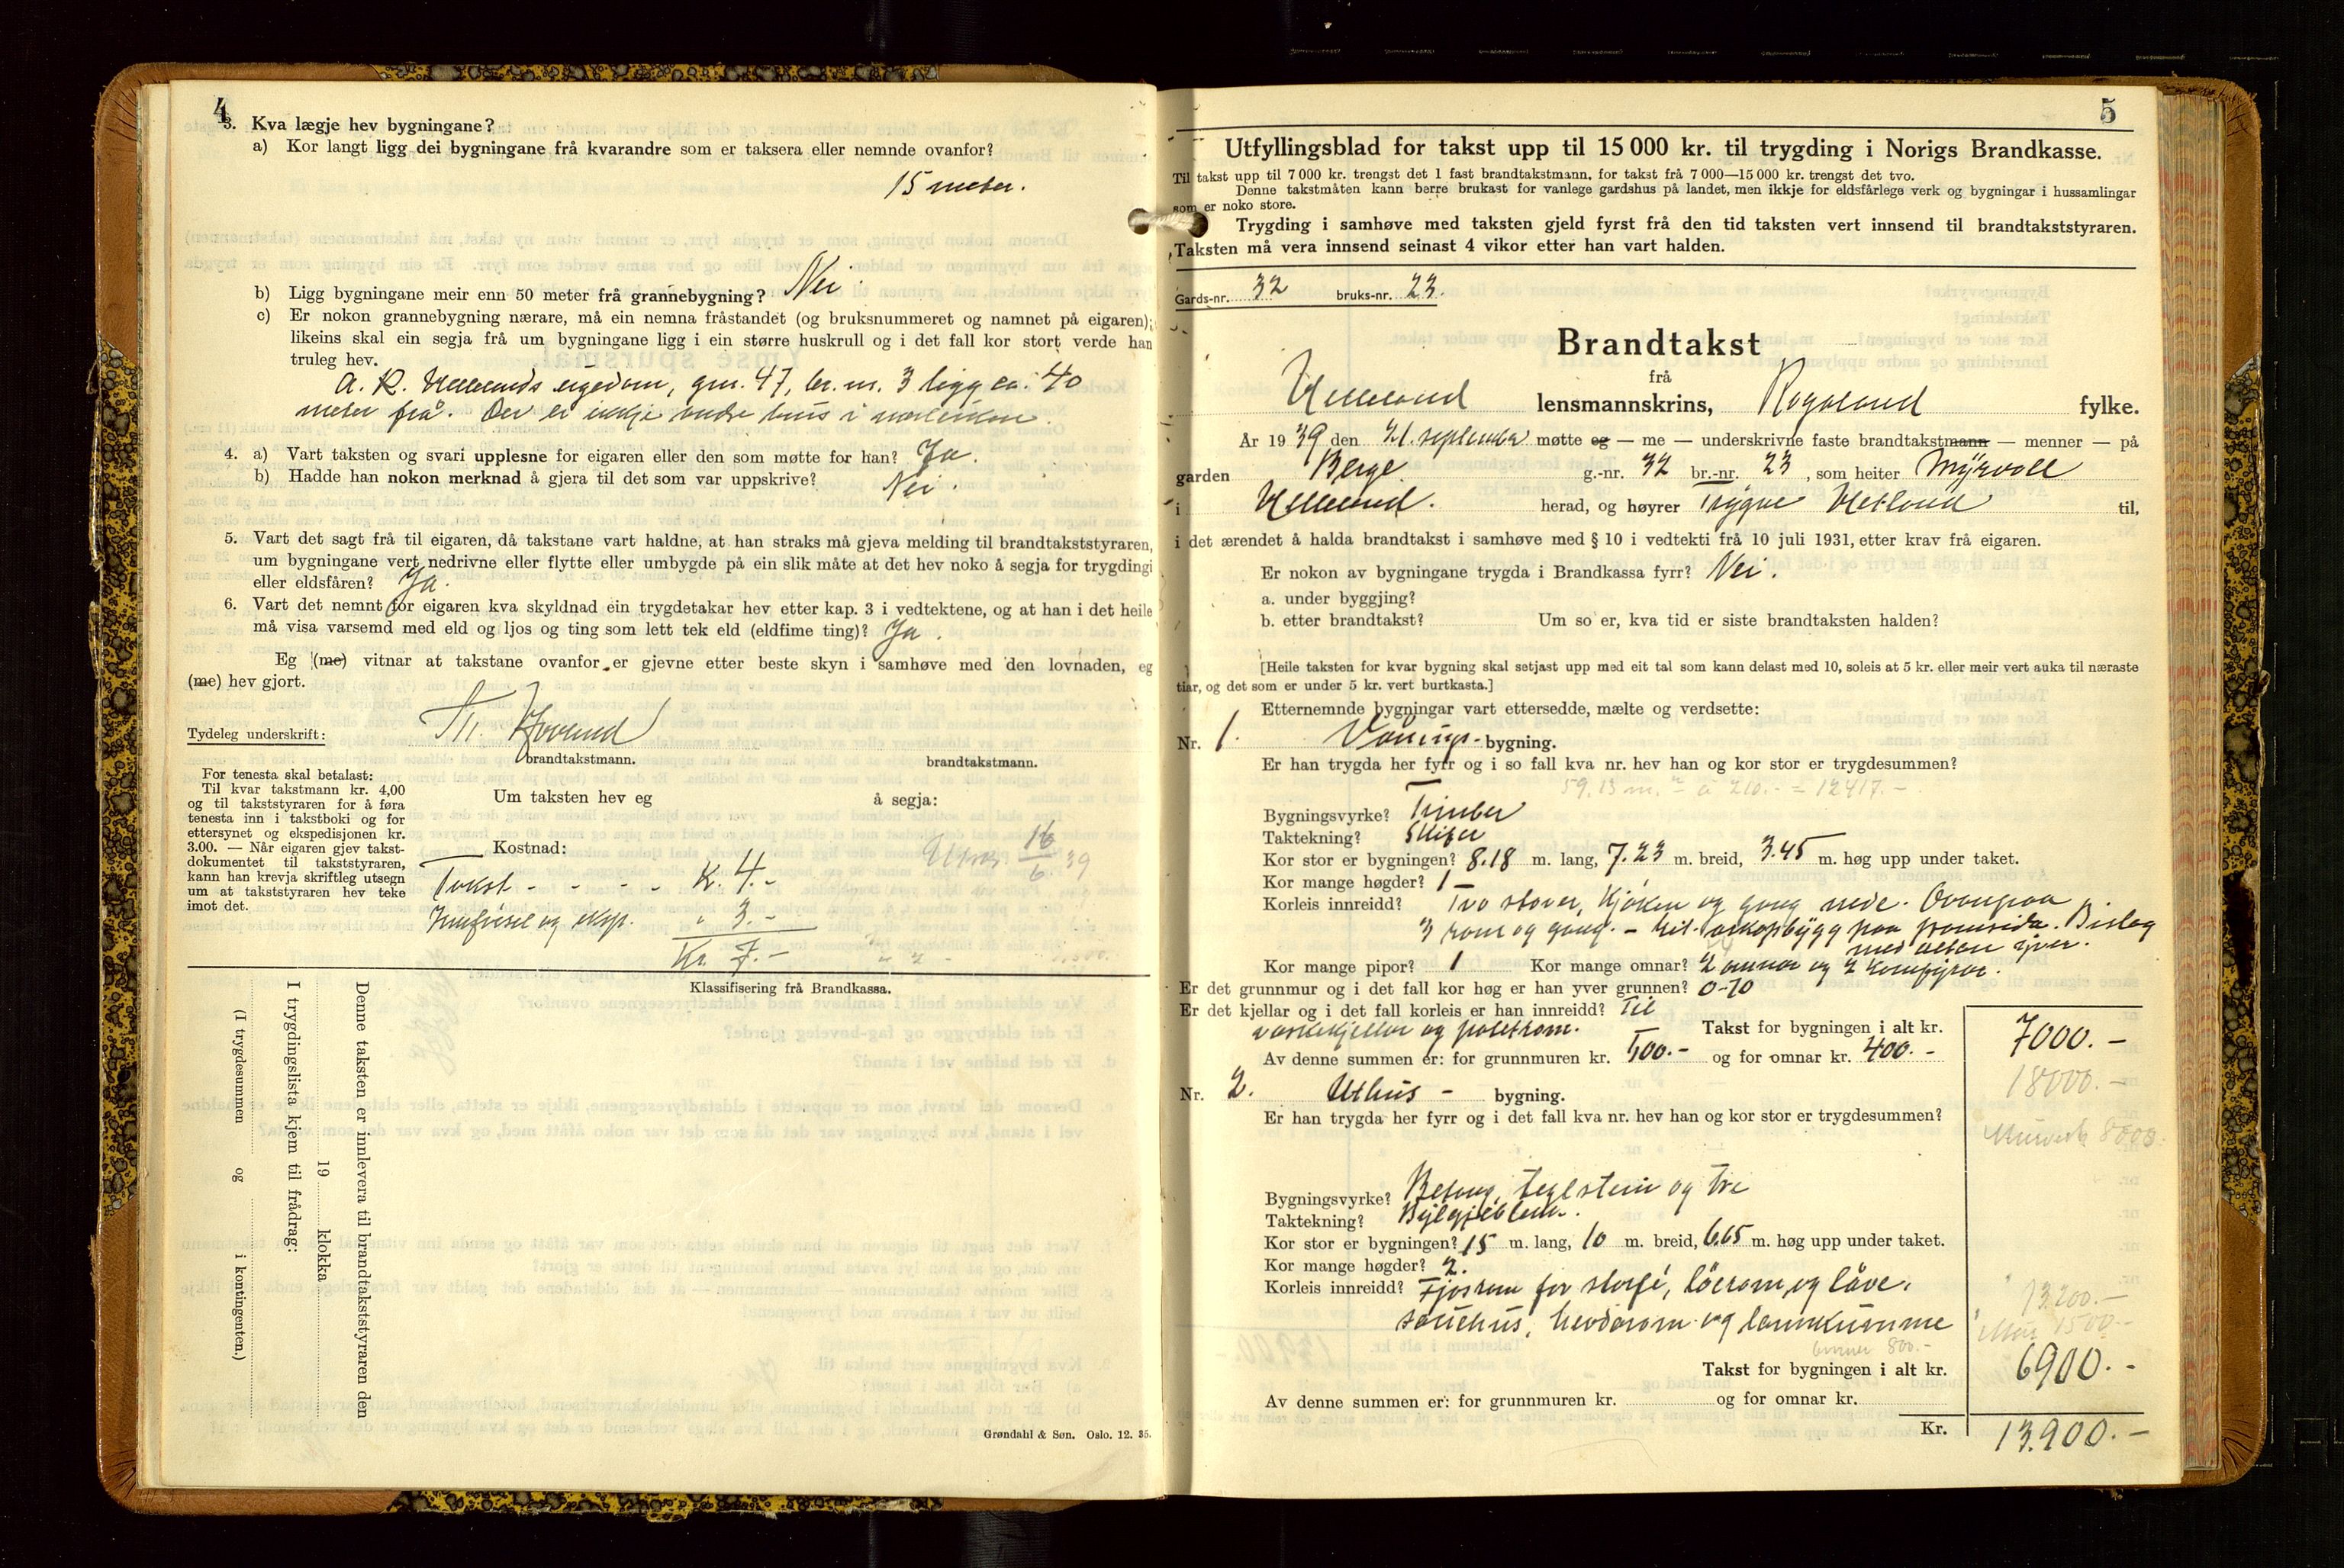 4
3. Kva lægje hev bygningane?
a) Kor langt ligg dei bygningane frå kvarandre som er taksera eller nemnde ovanfor?
15 meter.
b) Ligg bygningane meir enn 50 meter frå grannebygning? Nei.
c) Er nokon grannebygning nærare, må ein nemna fråstandet (og bruksnummeret og namnet på eigaren);
likeins skal ein segja frå um bygningane ligg i ein større huskrull og i det fall kor stort verde han
truleg hev.
A. R. Hellelands eigedom, gnr. 47, br. nr. 3 ligg ca. 40
meter frå. Der er ikkje andre hus i nærleiken.
4. a) Vart taksten og svari upplesne for eigaren eller den som møtte for han? Ja.
b) Hadde han nokon merknad å gjera til det som var uppskrive? Nei.
5. Vart det sagt frå til eigaren, då takstane vart haldne, at han straks må gjeva melding til brandtakststyraren,
um bygningane vert nedrivne eller flytte eller umbygde på ein slik måte at det hev noko å segja for trygdingi
eller eldsfåren? Ja.
6. Vart det nemnt for eigaren kva skyldnad ein trygdetakar hev etter kap. 3 i vedtektene, og at han i det heile
må visa varsemd med eld og ljos og ting som lett tek eld (eldfime ting)? Ja.
Eg (me) vitnar at takstane ovanfor er gjevne etter beste skyn i samhøve med den lovnaden, eg
(me) hev gjort.
Tydeleg underskrift:
brandtakstmann. brandtakstmann.
For tenesta skal betalast:
Til kvar takstmann kr. 4,00
og til takststyraren for å føra
tenesta inn i takstboki og for
ettersynet og ekspedisjonen kr.
3.00. — Når eigaren gjev takst-
dokumentet til takststyraren,
kann han krevja skriftleg utsegn
um at takststyraren hev teke
imot det.
Um taksten hev eg å segja:
Kostnad:
16/6 39
Takst - - - - K. 4.-
Innførsel og eksp. " 3.-
Kr. 7.-
Klassifisering frå Brandkassa.
Denne taksten er innlevera til brandtakststyraren den
19 klokka
I trygdingslista kjem til frådrag:
(I trygdesummen og i kontingenten.)
Grøndahl & Søn. Oslo. 12. 35.
5
Utfyllingsblad for takst upp til 15 000 kr. til trygding i Norigs Brandkasse.
Til takst upp til 7 000 kr. trengst det 1 fast brandtakstmann, for takst frå 7 000—15 000 kr. trengst det tvo.
Denne takstmåten kann berre brukast for vanlege gardshus på landet, men ikkje for eldsfårlege verk og bygningar i hussamlingar
som er noko store.
Trygding i samhøve med taksten gjeld fyrst frå den tid taksten vert innsend til brandtakststyraren.
Taksten må vera innsend seinast 4 vikor etter han vart halden.
Gards-nr. 32 bruks-nr. 23.
Brandtakst
frå
Helleland lensmannskrins, Rogaland fylke.
År 1939 den 21. september møtte eg — me — underskrivne faste brandtakstmann — menner — på
garden Berge g.-nr. 32 br.-nr. 23, som heiter Myrvoll
i Helleland. herad, og høyrer Trygve Hetland til,
i det ærendet å halda brandtakst i samhøve med § 10 i vedtekti frå 10 juli 1931, etter krav frå eigaren.
Er nokon av bygningane trygda i Brandkassa fyrr? Nei.
a. under byggjing?
b. etter brandtakst? Um so er, kva tid er siste brandtaksten halden?
[Heile taksten for kvar bygning skal setjast upp med eit tal som kann delast med 10, soleis at 5 kr. eller meir vert auka til næraste
tiar, og det som er under 5 kr. vert burtkasta.]
Etternemnde bygningar vart ettersedde, mælte og verdsette:
Nr. 1. Vånings- bygning.
Er han trygda her fyrr og i so fall kva nr. hev han og kor stor er trygdesummen?
59.13 m.² à 210.- = 12417.-
Bygningsvyrke? Timber
Taktekning? Skifer
Kor stor er bygningen? 8.18 m. lang, 7.23 m. breid, 3.45 m. høg upp under taket.
Kor mange høgder? 1 –
Korleis innreidd? Tvo stover, kjøken og gang nede. Ovanpaa
3 rom og gang. - Eit arkopbygg paa framsida. Bislag
med altan yver.
Kor mange pipor? 1 Kor mange omnar? 2 omnar og 2 komfyrar.
Er det grunnmur og i det fall kor høg er han yver grunnen? 0-70
Er det kjellar og i det fall korleis er han innreidd? Til
vaskekjellar og potetrom. Takst for bygningen i alt kr. 7000.-
Av denne summen er: for grunnmuren kr. og for omnar kr. 400.-
18000.-
8000.
Nr. 2. Uthus - bygning.
Er han trygda her fyrr og i det fall kva nr. hev han og kor stor er trygdesummen?
Bygningsvyrke? Betong, teglstein og tre
Taktekning? Bylgjeblekk.
Kor stor er bygningen? 15 m. lang, 10 m. breid, 6.65 m. høg upp under taket.
Kor mange høgder? 2.
Korleis innreidd? Fjosrom for storfé, löerom, og låve.
sauehus, hevdarom og landkumme
13.200.-
Mur 1500.-
800.-
Takst for bygningen i alt kr. 6900.-
Av denne summen er: for grunnmuren kr. og for omnar kr.
Kr. 13.900.-